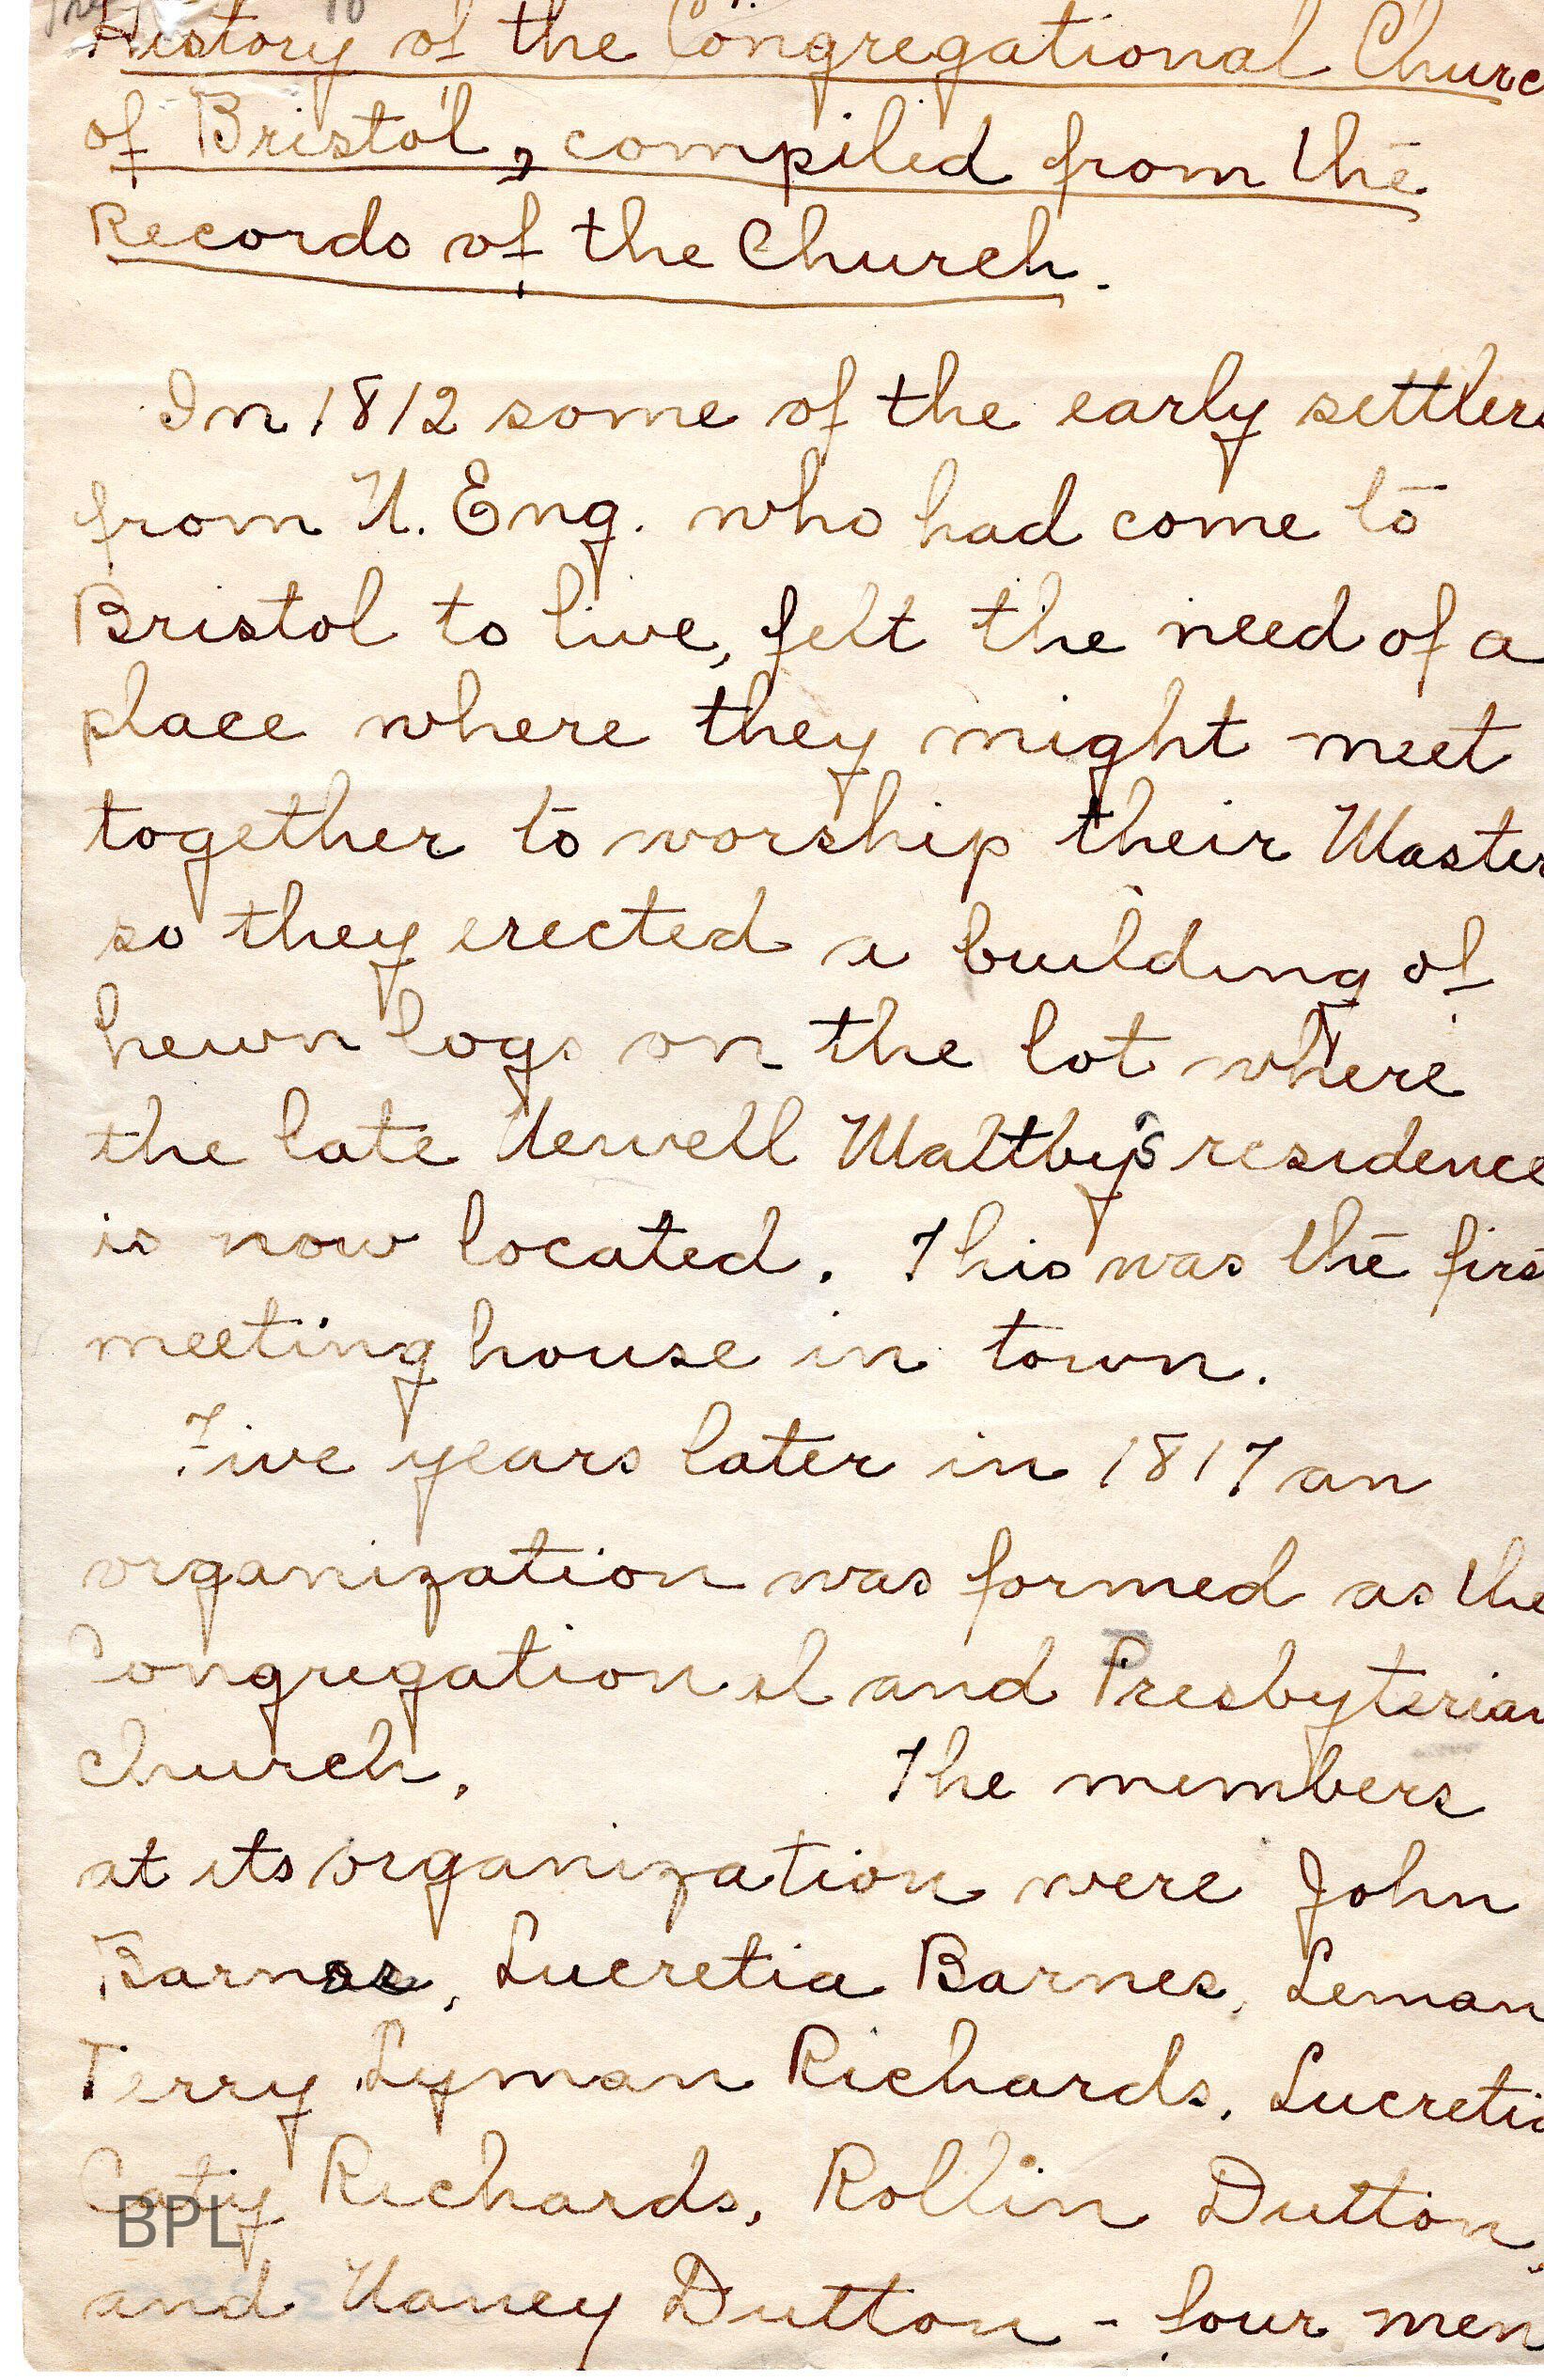 History of the Congregational Churc
of Bristol, compiled from the
Records of the Church.
In 1812 some of the early settlers
from N. Eng. who had come to
Bristol to live, felt the need of a
place where they might meet
together to worship their Master
so they erected a building of
hewn logs on the lot where
the late Newell Maltby's residence
is now located. This was the first
meeting house in town.
Five years later in 1817 an
organization was formed as the
Congregational and Presbyterian
church. The members
at its organization were John
Barnes, Lucretia Barnes, Leman
Terry Lyman Richards, Lucretia
Caty Richards, Rollin Dutton,
and Nancy Dutton - four men
BPL